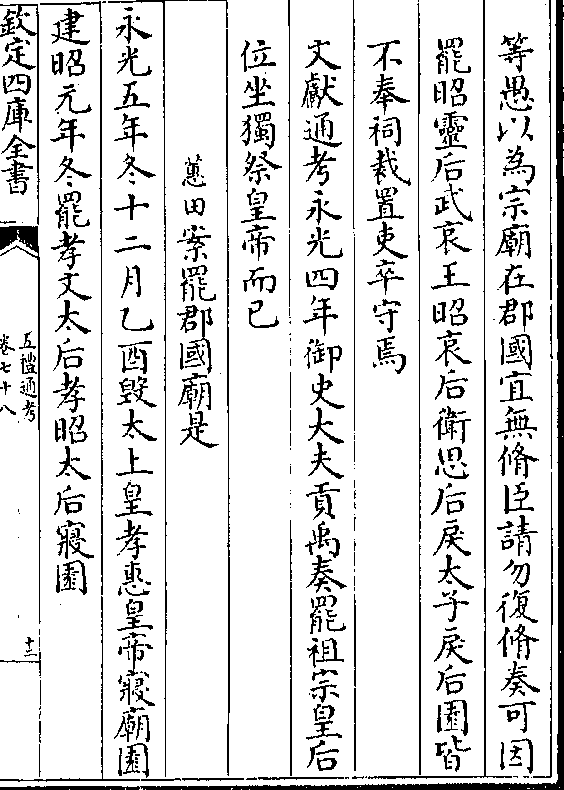 等愚以為宗廟在郡國宜無脩臣請勿復脩奏可因
罷昭靈后武哀王昭哀后衛思后戾太子戾后園皆
不奉祠裁置吏卒守焉
文獻通考永光四年御史大夫貢禹奏罷祖宗皇后
位坐獨祭皇帝而已
蕙田案罷郡國廟是
永光五年冬十二月乙酉毀太上皇孝惠皇帝寢廟園
建昭元年冬罷孝文太后孝昭太后寢園
欽定四庫全書
五禮通考
卷七十八
十三